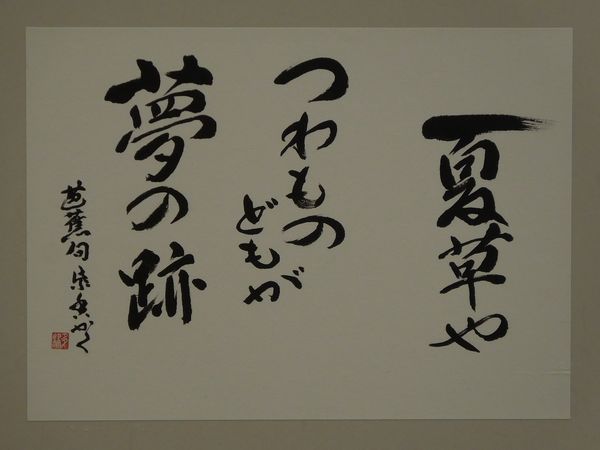 夏草や
つわもの
どもが
夢の跡
芭蕉句 紫香かく